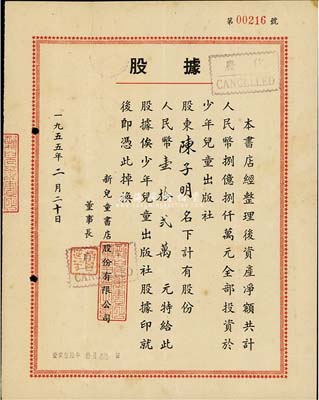 第00216號
作廢
CANCELLED
股據
本書店經整理後資產淨額共計
人民幣捌億捌仟萬元全部投資於
少年兒童出版社
股東陳子明名下計有股份
人民幣壹拾弍萬元特給此
股據俟少年兒童出版社股據印就
後即憑此掉換
新兒童書店股份有限公司
董事長
一九五五年二月二十日